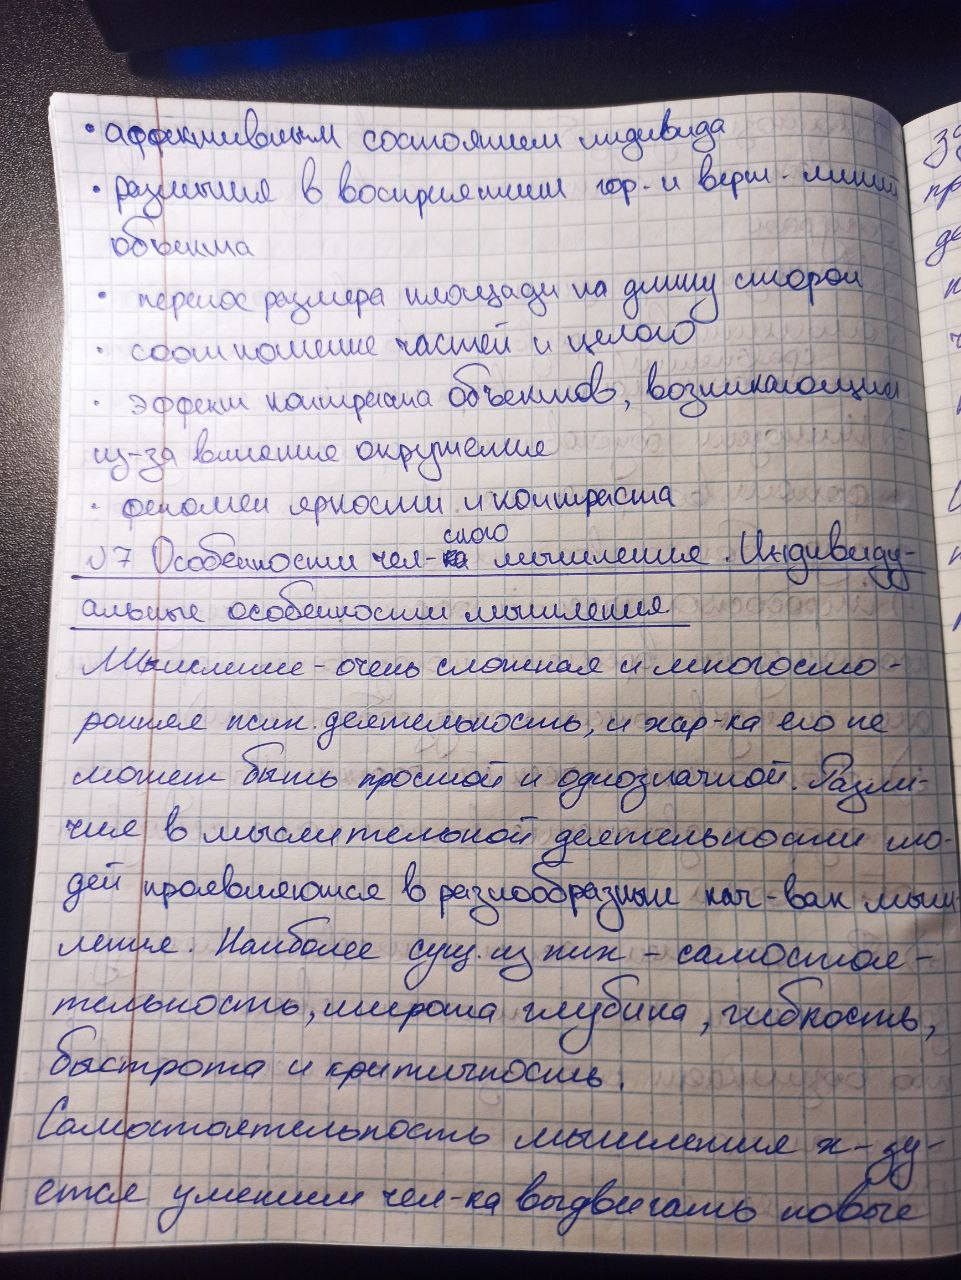 • аффективным состоянием индивида
• различия в восприятии гор. и верт. линий
объекта
• перенос размера площади на длину сторон
• соотношение частей и целого
• эффект контраста объектов, возникающий
из-за влияние окружение
• феномен яркости и контраста
№7 Особенности чел-ского мышления. Индивиду-
альные особенности мышления
Мышление - очень сложная и многосто-
ронняя псих. деятельность, и хар-ка его не
может быть простой и однозначной. Разли-
чия в мыслительной деятельности лю-
дей проявляются в разнообразных кач-вах мыш-
ления. Наиболее сущ. из них - самостоя-
тельность, широта глубина, гибкость,
быстрота и критичность.
Самостоятельность мышления х-зу-
ется умением чел-ка выдвигать новые